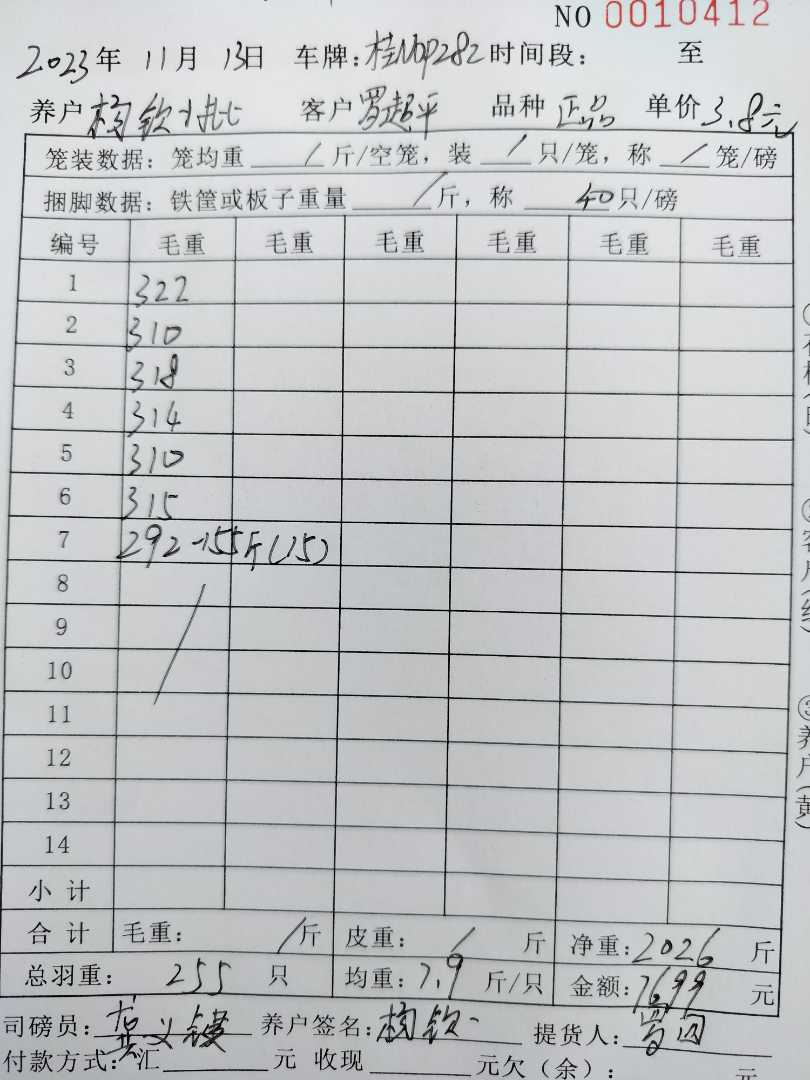 NO 0010412
2023年 11月 13日 车牌:桂N0P282 时间段: 至
养户 客户 罗超平 品种 正品 单价 3.8元
笼装数据: 笼均重 / 斤/空笼, 装 / 只/笼, 称 / 笼/磅
捆脚数据: 铁筐或板子重量 / 斤, 称 40 只/磅
编号 毛重 毛重 毛重 毛重 毛重 毛重
1 322
2 310
3 318
4 314
5 310
6 315
7 292-155斤(15)
8
9
10
11
12
13
14
小 计
合 计 毛重: / 斤 皮重: / 斤 净重: 2026 斤
总羽重: 255 只 均重: 7.9 斤/只 金额: 7699 元
司磅员: 养户签名: 提货人:
付款方式: 汇 元 收现 元欠(余): 元
②客户(红)
③养户(黄)